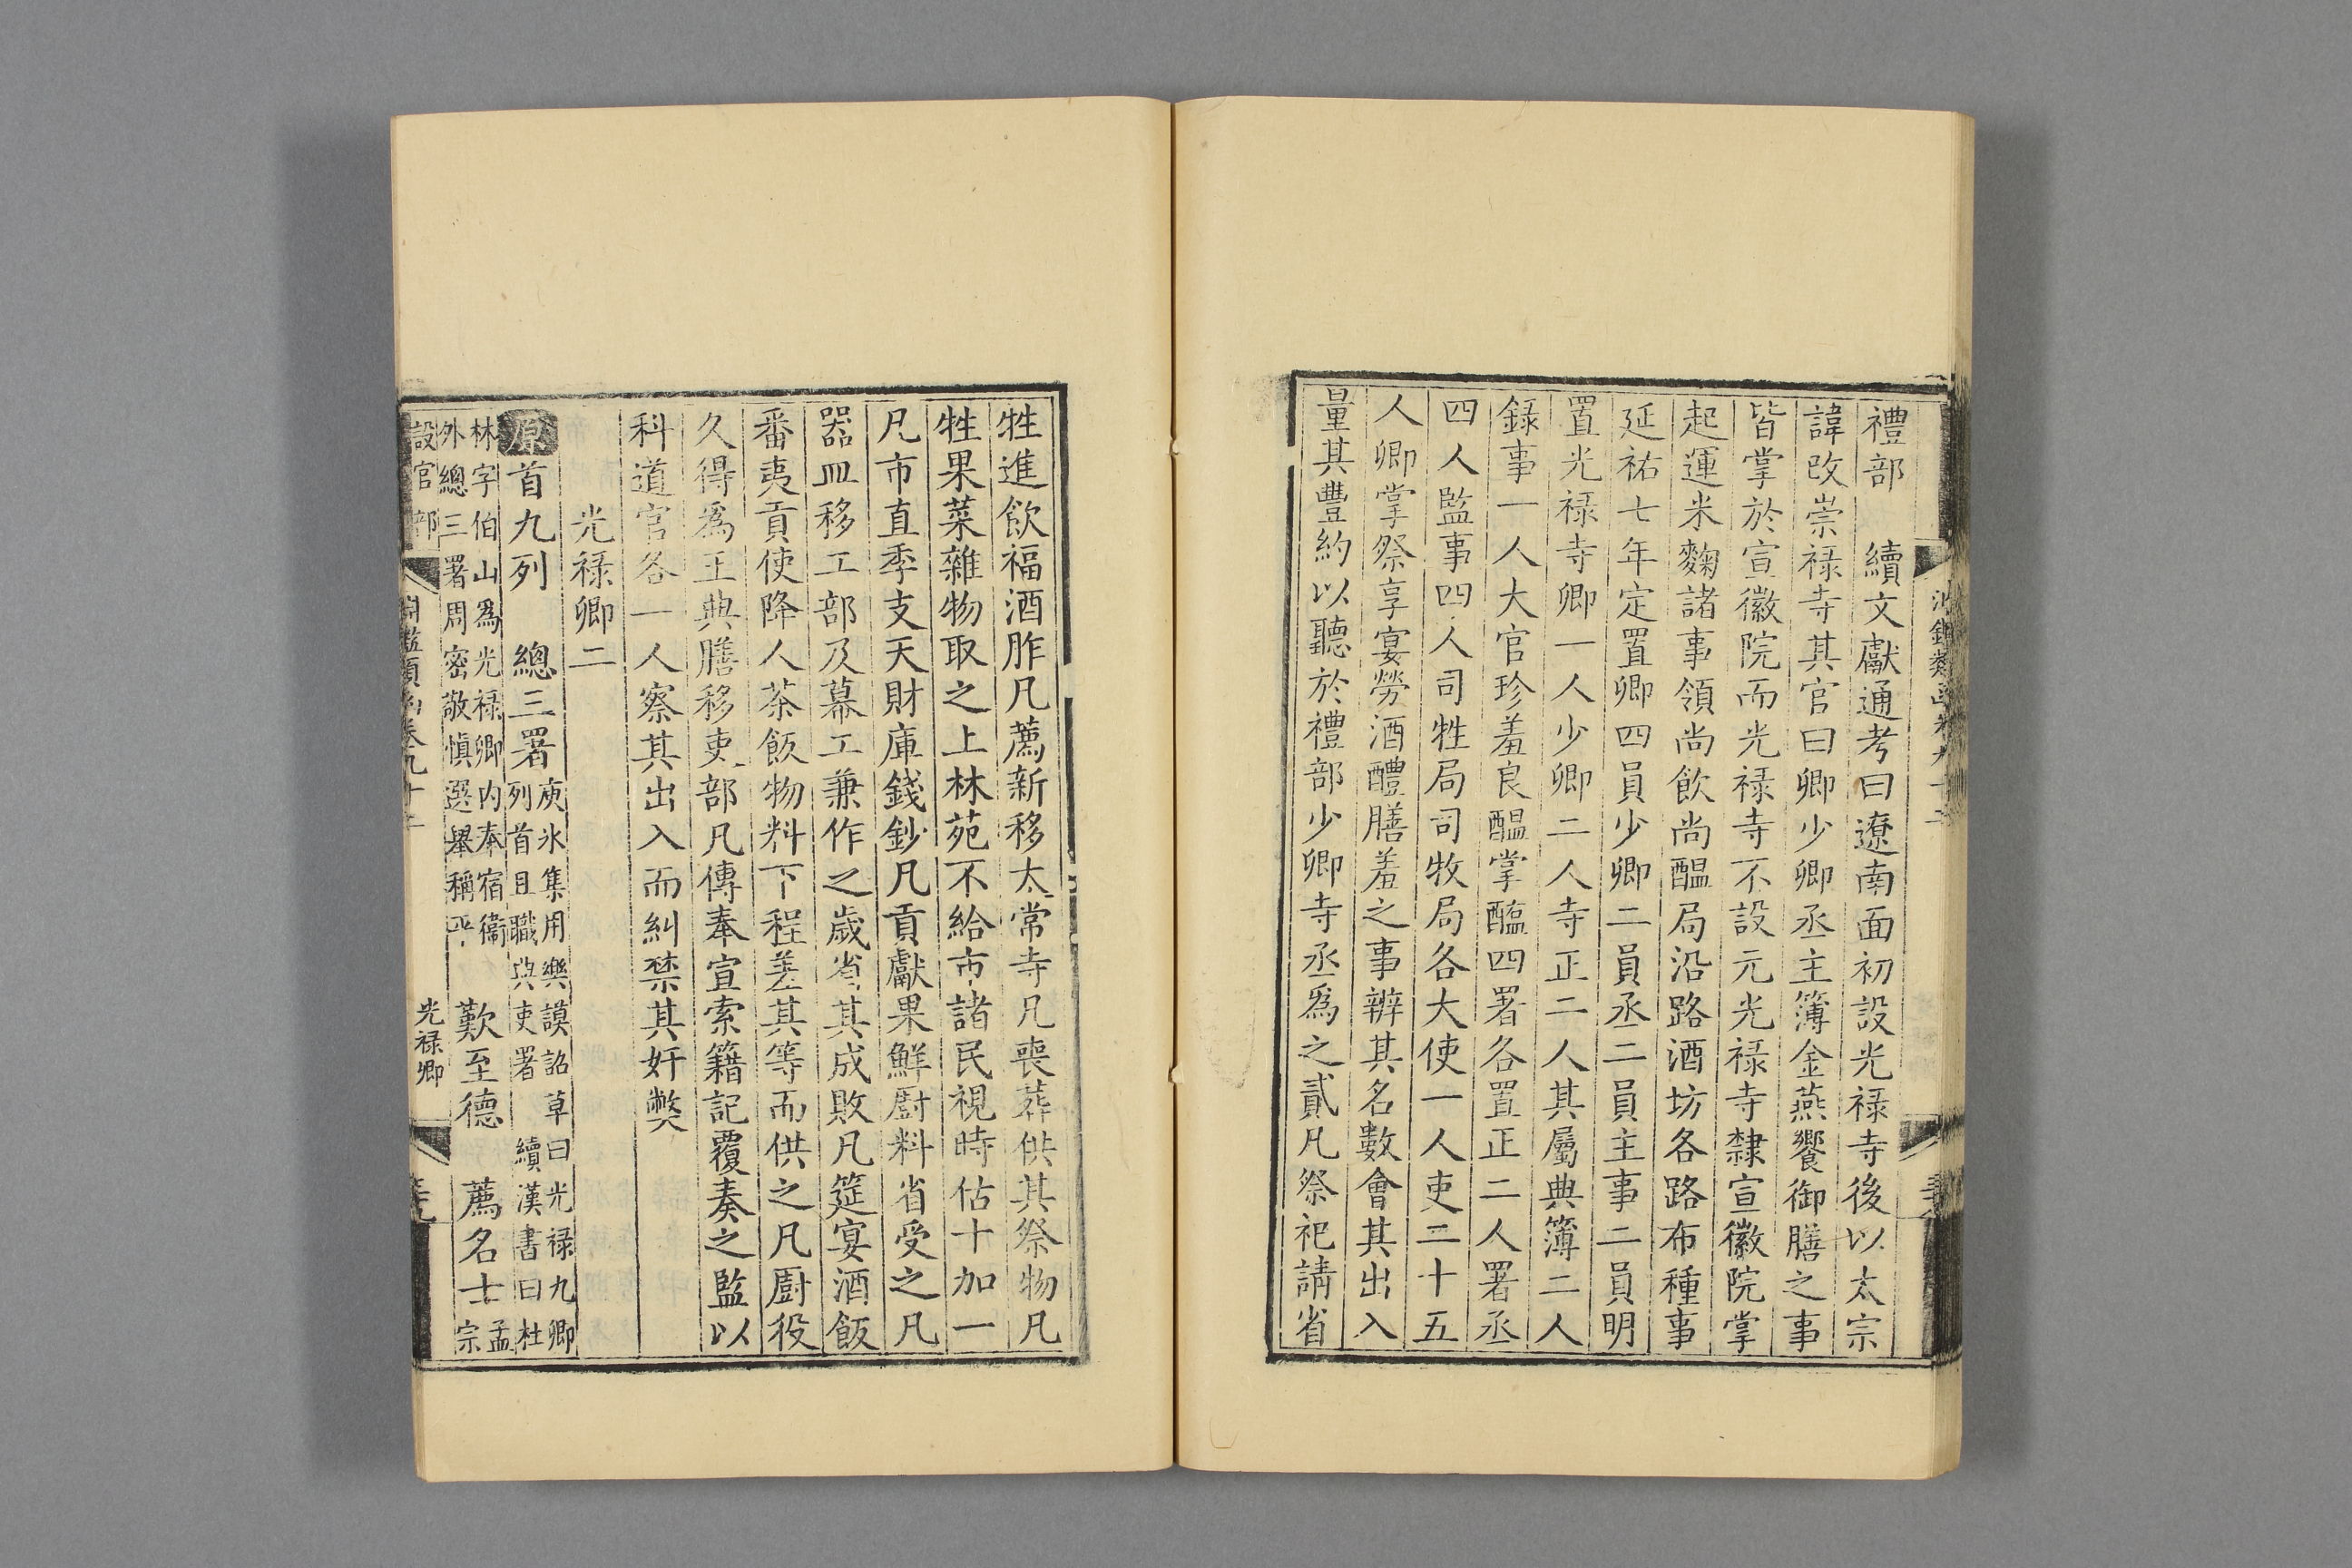 禮部　續文獻通考曰遼南面初設光祿寺後以太宗
諱改崇祿寺其官曰卿少卿丞主簿金燕饗御膳之事
皆掌於宣徽院而光祿寺不設元光祿寺隸宣徽院掌
起運米麴諸事領尚飲尚醞局沿路酒坊各路布種事
延祐七年定置卿四員少卿二員丞二員主事二員明
置光祿寺卿一人少卿二人寺正二人其屬典簿二人
錄事一人大官珍羞良醞掌醢四署各置正二人署丞
四人監事四人司牲局司牧局各大使一人吏三十五
人卿掌祭享宴勞酒醴膳羞之事辨其名數會其出入
量其豐約以聽於禮部少卿寺丞爲之貳凡祭祀請省
牲進飲福酒胙凡薦新移太常寺凡喪葬供其祭物凡
牲果菜雜物取之上林苑不給市諸民視時估十加一
凡市直季支天財庫錢鈔凡貢獻果鮮廚料省受之凡
器皿移工部及募工兼作之歲省其成敗凡筵宴酒飯
番夷貢使降人茶飯物料下程差其等而供之凡廚役
久得爲王典膳移吏部凡傳奉宣索籍記覆奏之監以
科道官各一人察其出入而糾禁其奸弊
光祿卿二
原首九列　總三署
庾氷集用樂謨詔草曰光祿九卿
列首且職典吏署　續漢書曰杜
林字伯山爲光祿卿內奉宿衞
外總三署周密敬愼選舉稱平
歎至德　薦名士
孟
宗
設官部
淵鑑類函卷九十二
光祿卿